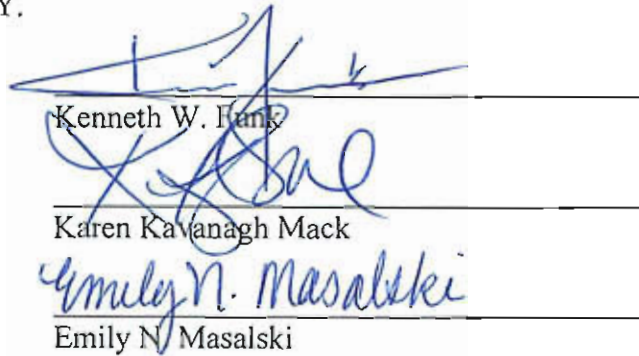 Y.
Kenneth W. Funk
Karen Kavanagh Mack
Emily N. Masalski
Emily N. Masalski